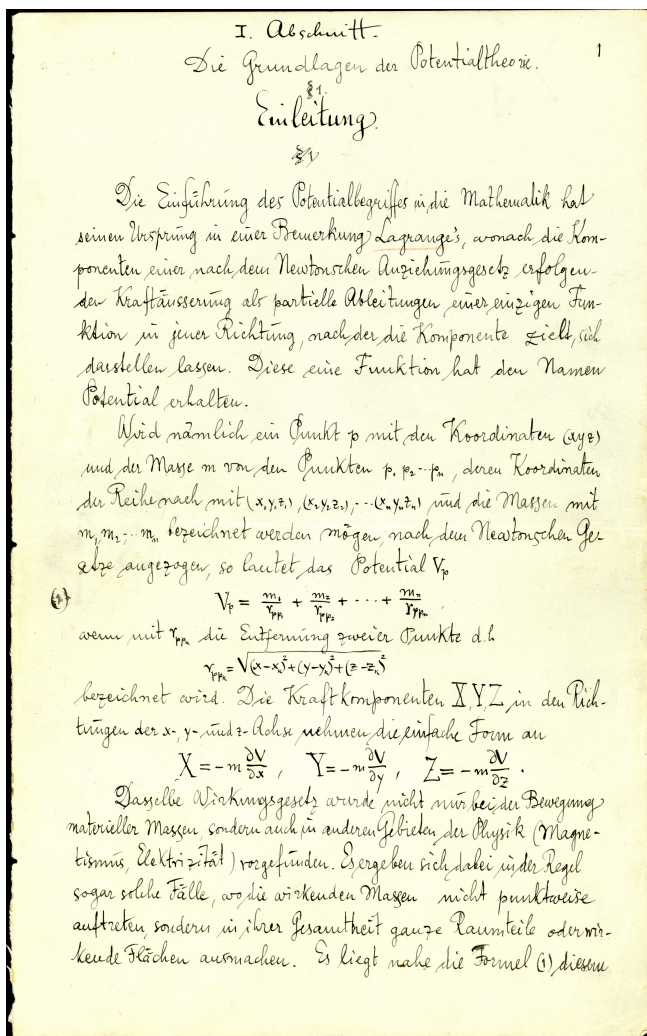 1
I. Abschnitt.
Die Grundlagen der Potentialtheorie.
§1.
Einleitung.
Die Einführung des Potentialbegriffes in die Mathematik hat
seinen Ursprung in einer Bemerkung Lagrange's, wonach die Kom-
ponenten einer nach dem Newtonschen Anziehungsgesetz erfolgen-
den Kraftäusserung als partielle Ableitungen einer einzigen Fun-
ktion in jener Richtung, nach der die Komponente zielt, sich
darstellen lassen. Diese eine Funktion hat den Namen
Potential erhalten.
Wird nämlich ein Punkt p mit den Koordinaten (xyz)
und der Masse m von den Punkten p₁ p₂ ... pₙ, deren Koordinaten
der Reihe nach mit (x₁y₁z₁), (x₂y₂z₂), ... (xₙyₙzₙ) und die Massen mit
m₁ m₂ ... mₙ bezeichnet werden mögen, nach dem Newtonschen Ge-
setze angezogen, so lautet das Potential Vₚ
(1) Vₚ = m₁/r_pp₁ + m₂/r_pp₂ + ... + mₙ/r_ppₙ
wenn mit r_ppₙ die Entfernung zweier Punkte d.h
r_ppₙ = √((x-xₙ)²+(y-yₙ)²+(z-zₙ)²)
bezeichnet wird. Die Kraftkomponenten X, Y, Z in den Rich-
tungen der x-, y- und z-Achse nehmen die einfache Form an
X = -m ∂V/∂x , Y = -m ∂V/∂y , Z = -m ∂V/∂z .
Dasselbe Wirkungsgesetz wurde nicht nur bei der Bewegung
materieller Massen, sondern auch in anderen Gebieten der Physik (Magne-
tismus, Elektrizität) vorgefunden. Es ergeben sich dabei in der Regel
sogar solche Fälle, wo die wirkenden Massen nicht punktweise
auftreten, sondern in ihrer Gesamtheit ganze Raumteile oder wir-
kende Flächen ausmachen. Es liegt nahe die Formel (1) diesem